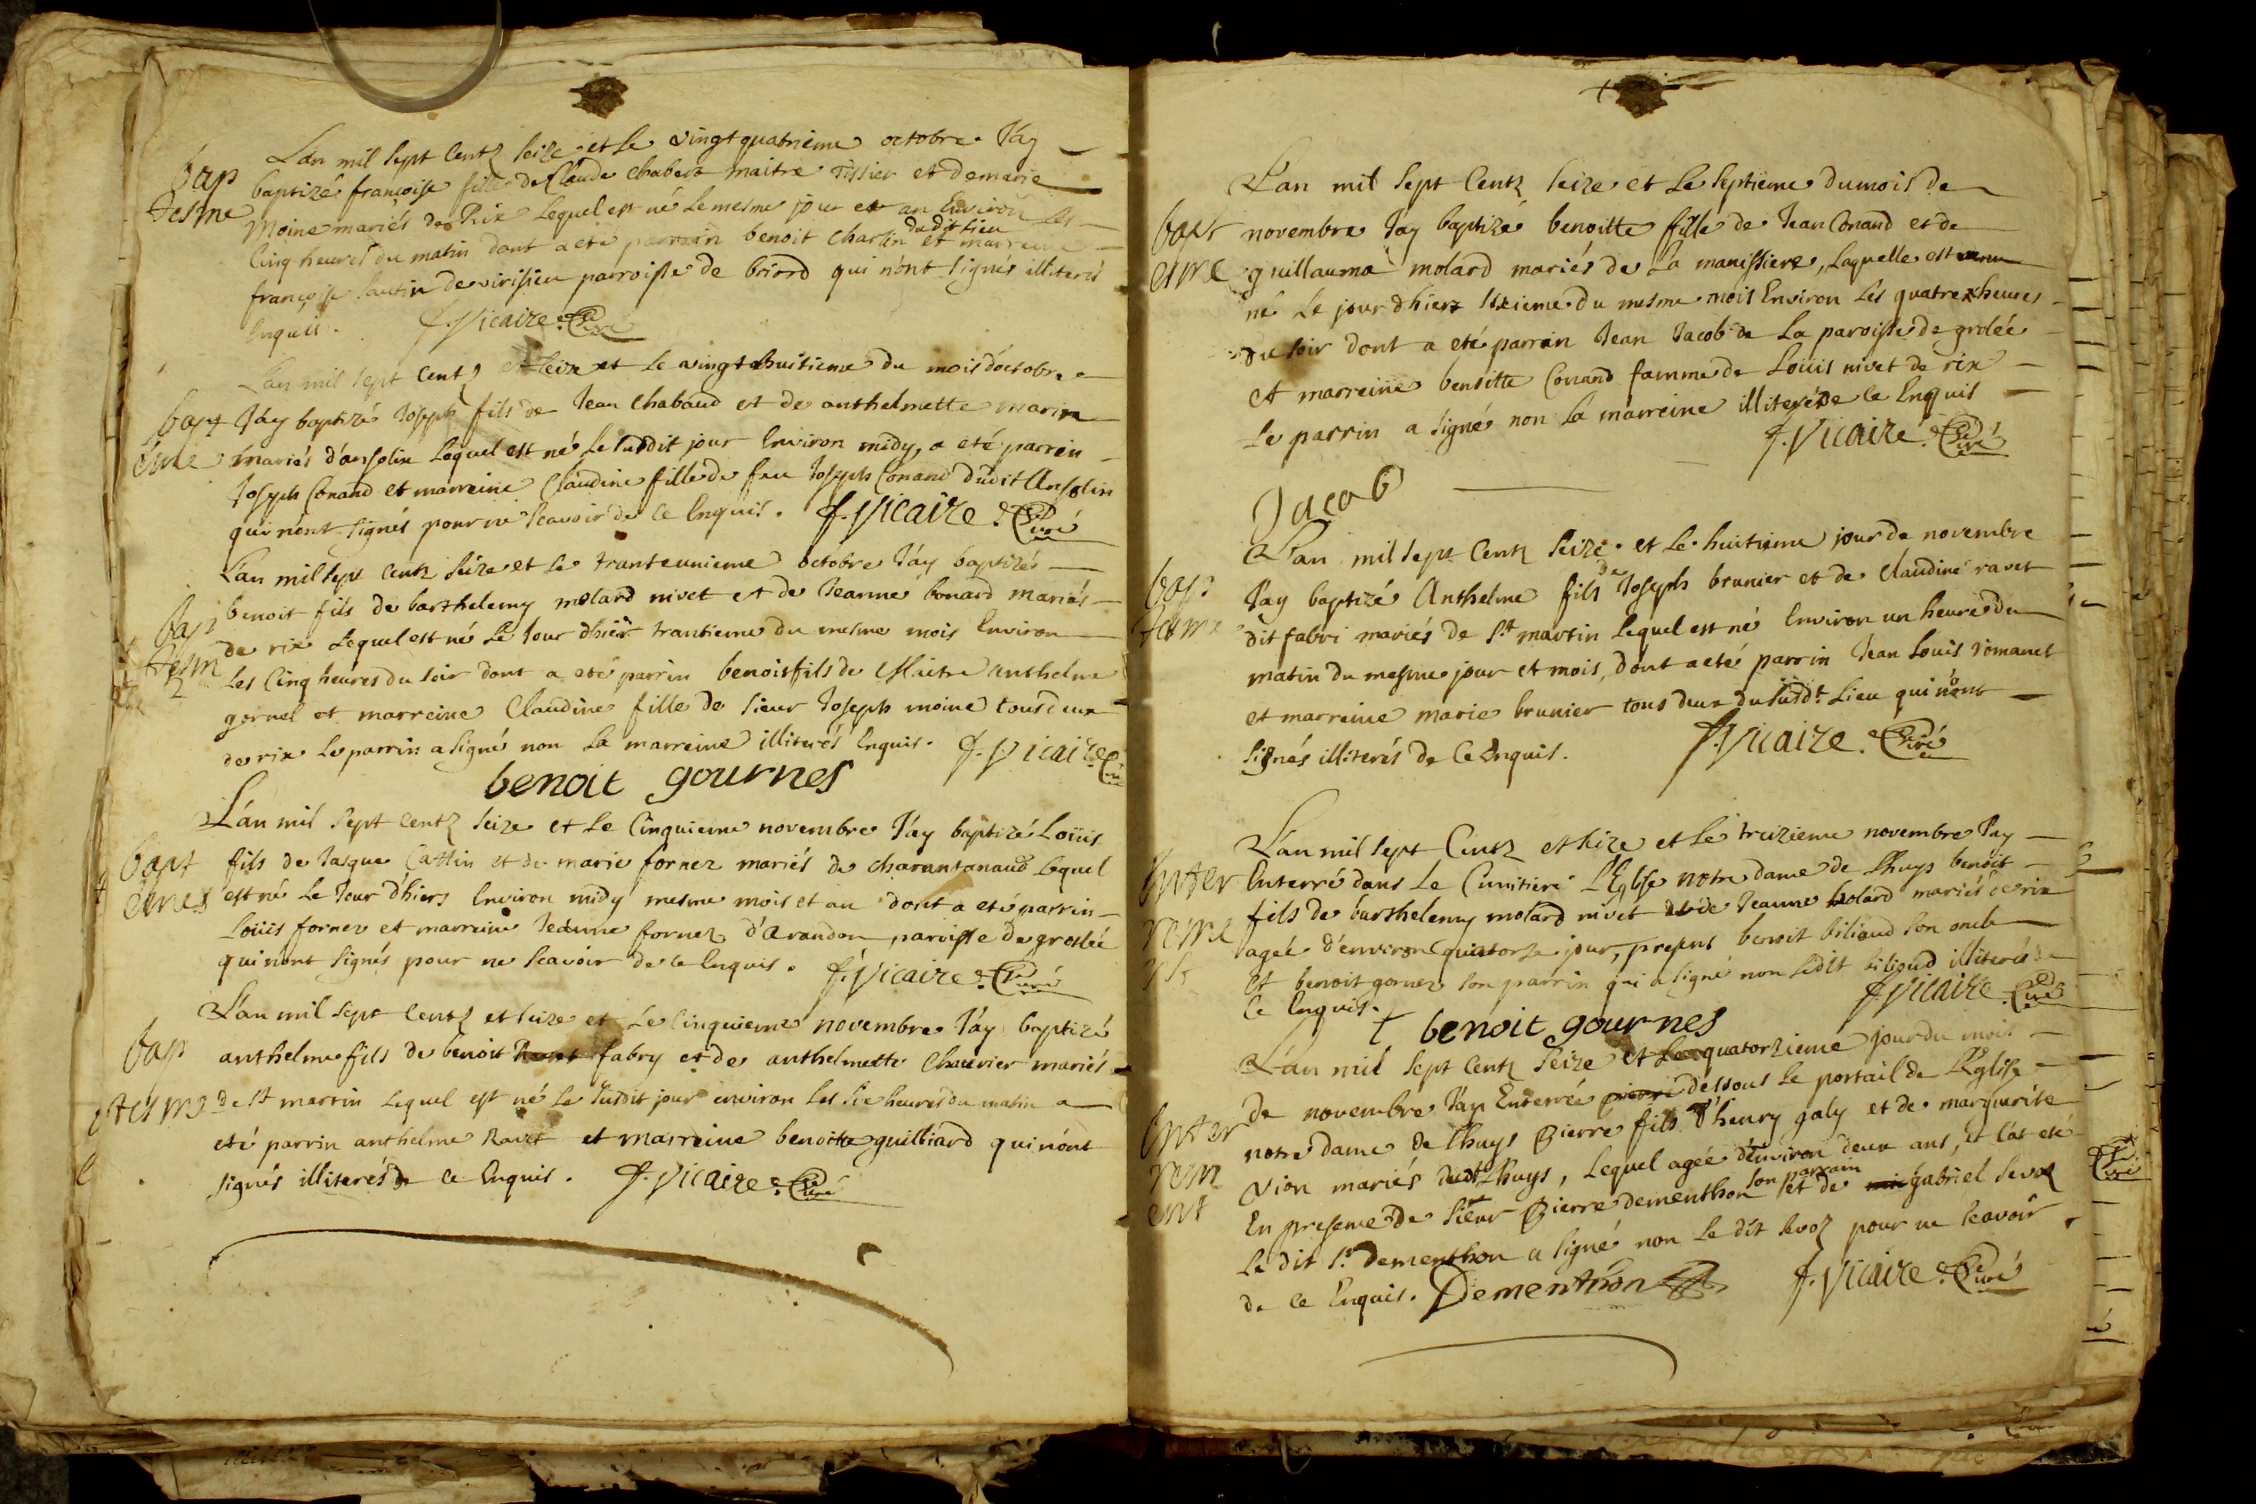 L'an mil sept Centz seize et le vingt quatrieme octobre J'ay
bap
baptizé françoise fille de Claude Chabert maitre Tissier et de marie
tesme
Moine mariés de Rix Lequel est né Le mesme jour et an Environ les
Cinq heures du matin dont a eté parrain benoit Charlin dudit lieu et marreine
françoise de virisieu parroisse de briord qui n'ont signés illiterés
Enquis. f. Vicaire Curé
L'an mil sept Centz et seize et Le vingt huitieme du mois d'octobre
bapt
J'ay baptizé Joseph fils de Jean Chabaud et de anthelmette marin
eme
mariés d'ansolin Lequel est né Le susdit jour Environ midy, a eté parrin
Joseph Conand et marreine Claudine fille de feu Joseph Conand dudit Ansolin
qui n'ont signés pour ne scavoir de ce Enquis. f. Vicaire Curé
L'an mil sept Centz seize et Le trante unieme octobre J'ay baptizés
bap
benoit fils de barthelemy molard nivet et de Jeanne bonard mariés
tesm
de rix Lequel est né Le Jour dhier trantieme du mesme mois Environ
Les Cinq heures du soir dont a eté parrin benoit fils de Maitre anthelme
gornel et marreine Claudine fille de sieur Joseph moine tous deux
de rix Le parrin a signé non La marreine illiterés Enquis. f. Vicaire Curé
benoit gournes
L'an mil sept Centz seize et Le Cinquieme novembre J'ay baptizé Loüis
bapt
fils de Jasque Cattin et de marie fornez mariés de charantonaud Lequel
emes
est né Le Jour d'hiers Environ midy mesme mois et an dont a eté parrin
Loüis fornez et marreine Jeanne fornez d'Arandon paroisse de groslée
qui n'ont signés pour ne scavoir de ce Enquis. f. Vicaire Curé
L'an mil sept Centz et seize et Le Cinquieme novembre J'ay baptizé
bap
anthelme fils de benoit fabry et de anthelmette Chauvier mariés
tesme
de St martin Lequel est né Le susdit jour environ Les six heures du matin a
eté parrin anthelme Ravet et marreine benoitte guilliard qui n'ont
signés illiterés de ce Enquis. f. Vicaire Curé
L'an mil sept Centz seize et Le septieme du mois de
bapt
novembre J'ay baptizé benoitte fille de Jean Conand et de
esme
guillauma molard mariés de La manissiere, Laquelle est
né Le jour dhier sixieme du mesme mois Environ Les quatre heures
du soir dont a eté parrin Jean Jacob de La paroisse de grolée
et marreine benoitte Conand famme de Loüis nivet de rix
Le parrin a signé non La marreine illiterée de ce Enquis
f. Vicaire Curé
Jacob
L'an mil sept Centz seize et Le huitieme jour de novembre
bap
J'ay baptizé Anthelme fils de Joseph brunier et de Claudine ravet
tesme
dit fabri mariés de St martin Lequel est né Environ un heure du
matin du mesme jour et mois, dont a eté parrin Jean Louis romanet
et marreine marie brunier tous deux du susdt Lieu qui n'ont
signés illiterés de Ce Enquis. f. Vicaire Curé
L'an mil sept Centz et seize et Le treizieme novembre J'ay
Enter
Enterré dans Le Cimitiere L'Eglise notre dame de Lhuys benoit
reme
fils de barthelemy molard nivet et de Jeanne bolard mariés de rix
agée d'environ quatorze jour, present benoit biliaud son oncle
et benoit gornez son parrin qui a signé non Ledit biliaud illiterés de
Ce Enquis. f. Vicaire Curé
benoit gournes
L'an mil sept Centz seize et Le quatorzieme jour du mois
de novembre J'ay Enterrée dessous Le portail de L'Eglise
Enter
notre dame de Lhuys Pierre fils d'henry galy et de marguerite
rem
Vion mariés dudt Lhuys, Lequel agée d'environ deux ans, et l'at eté
ent
En presence de sieur Pierre dementhon son parrain et de gabriel sevoz
Le dit Sr dementhon a signé non Le dit sevoz pour ne scavoir
de ce Enquis. Dementhon f. Vicaire Curé